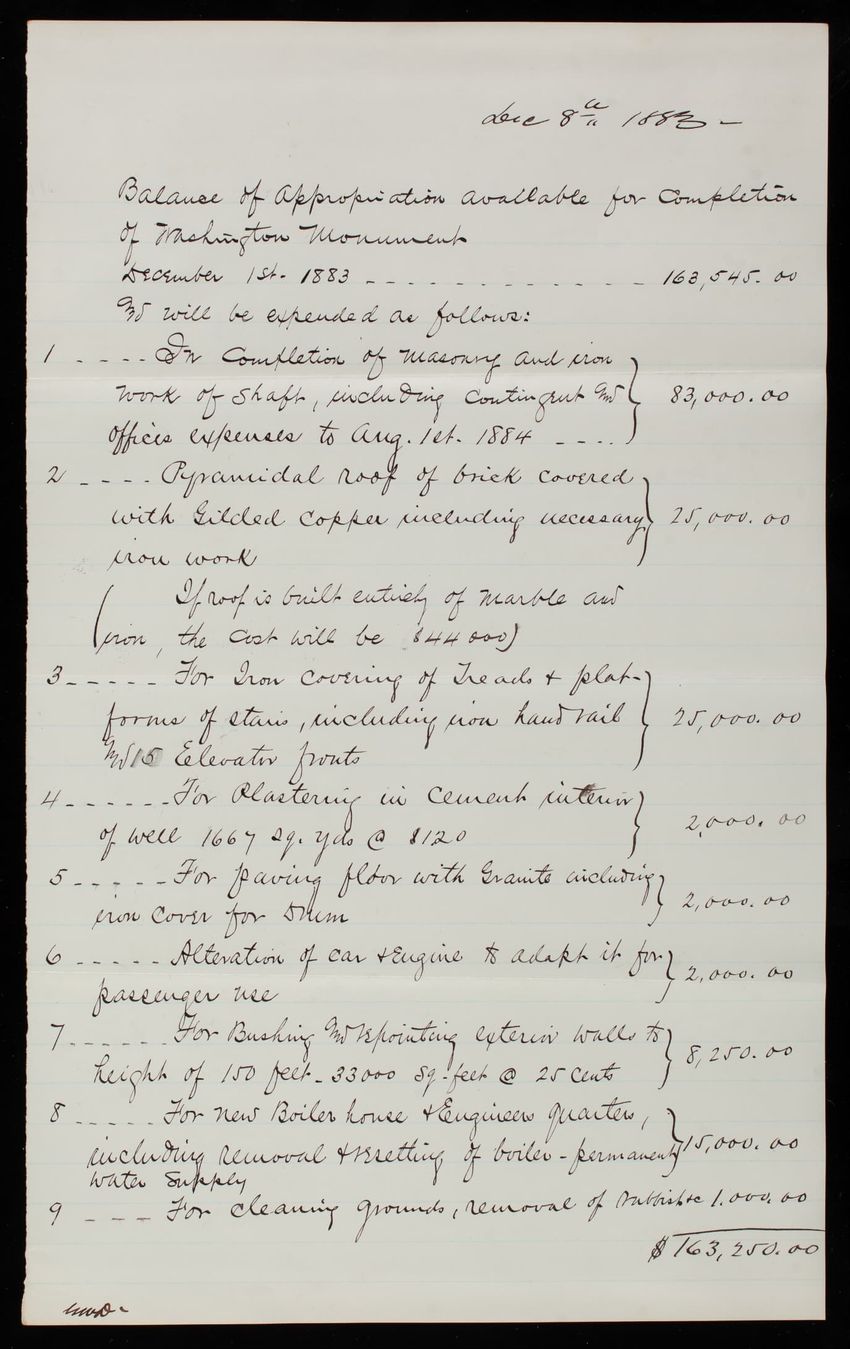 Dec 8th 1883 -
Balance of Appropriation available for Completion
of Washington Monument
December 1st. 1883 - - - - - - - - - - - - - 163,545. 00
And will be expended as follows:
1 - - - - In Completion of Masonry and iron
work of Shaft, including contingent and } 83,000.00
offices expenses to Aug. 1st. 1884 - - - -
2 - - - - Pyramidal roof of brick covered
with Gilded Copper including necessary } 25,000. 00
iron work
( If roof is built entirely of Marble and
iron, the cost will be $44 000)
3 - - - - - For Iron covering of Treads & plat-
forms of stairs, including iron hand rail } 25,000. 00
and 15 Eelevator fronts
4 - - - - - - For Plastering in Cement interior
of well 1667 sq. yds @ $120 } 2,000. 00
5 - - - - - For paving floor with Granite including
iron Cover for Drum } 2,000. 00
6 - - - - - Alteration of car & Engine to adapt it for
passenger use } 2,000. 00
7 - - - - - - For Bushing and repointing exterior walls to
height of 150 feet - 33000 Sq. feet @ 25 cents } 8,250. 00
8 - - - - - For new Boiler house & Engineers quarters,
including removal & resetting of boiler - permanent } 15,000. 00
water Supply
9 - - - For cleaning grounds, removal of rubbish &c 1.000. 00
$ 163,250.00